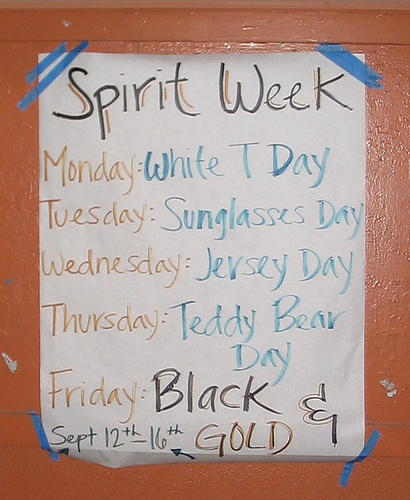 Spirit Week
Monday: White T Day
Tuesday: Sunglasses Day
Wednesday: Jersey Day
Thursday: Teddy Bear
Day
Friday: Black &
Sept 12th - 16th GOLD